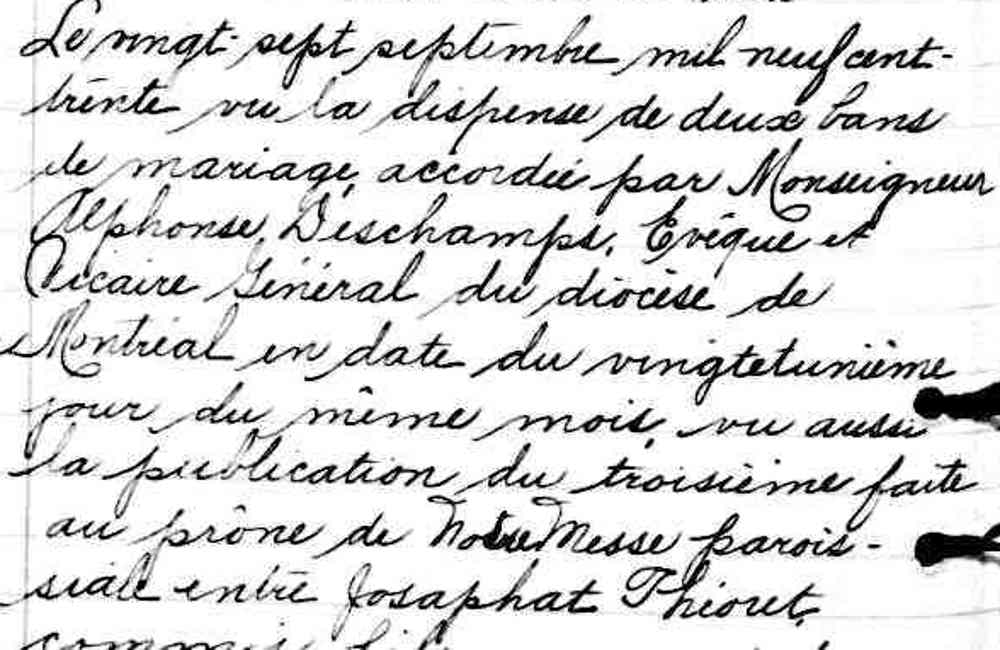 Le vingt-sept septembre mil neuf cent-
trente vu la dispense de deux bans
de mariage, accordée par Monseigneur
Alphonse, Deschamps, Evêque et
Vicaire Général du diocèse de
Montréal en date du vingtetunième
jour du même mois, vu aussi
la publication du troisième faite
au prône de Notre Messe parois-
siale entre Josaphat Thioret,
commis